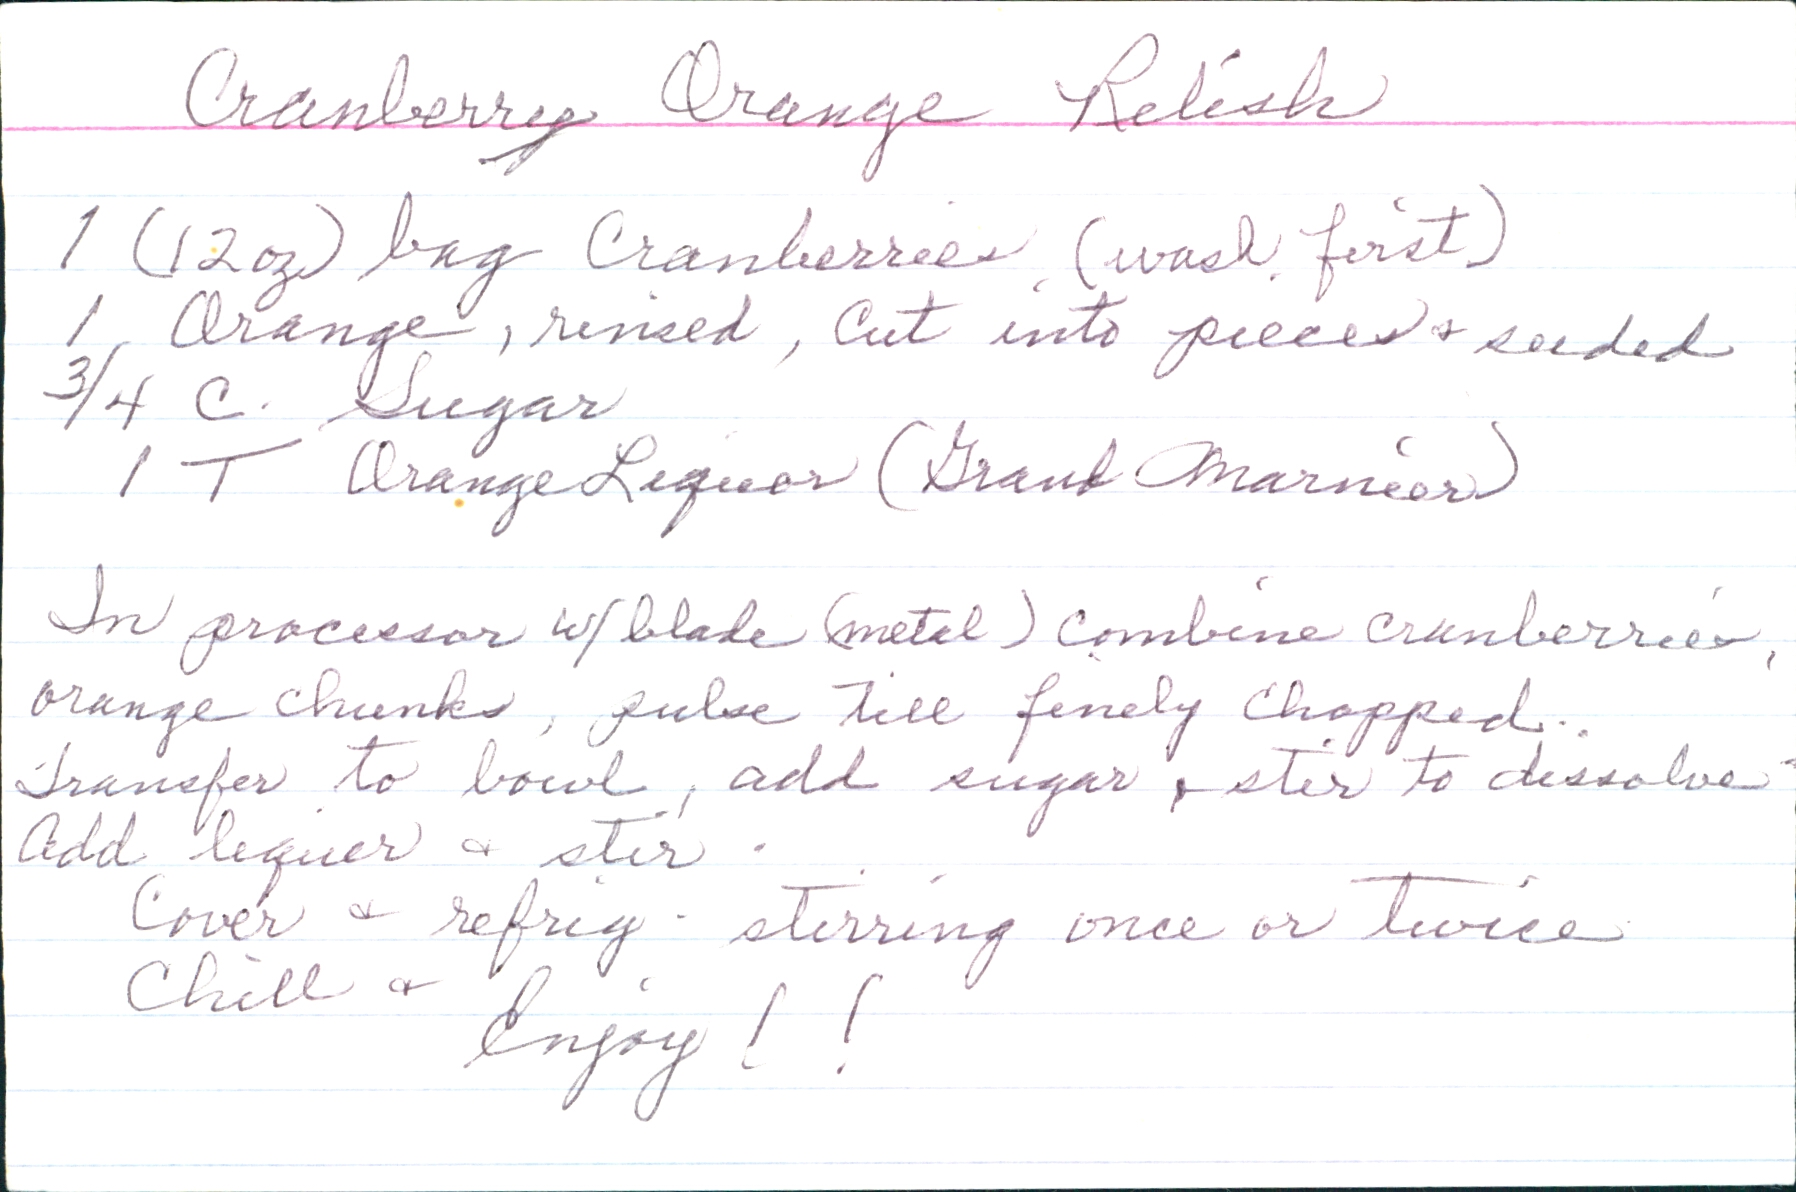 Cranberry Orange Relish
1 (12 oz) bag Cranberries (wash first)
1 Orange, rinsed, cut into pieces & seeded
3/4 C. Sugar
1 T Orange Liquor (Grand Marnier)
In processor w/ blade (metal) combine cranberries,
orange chunks, pulse till finely chopped.
Transfer to bowl, add sugar & stir to dissolve
Add liquer & stir.
Cover & refrig - stirring once or twice
Chill &
Enjoy!!